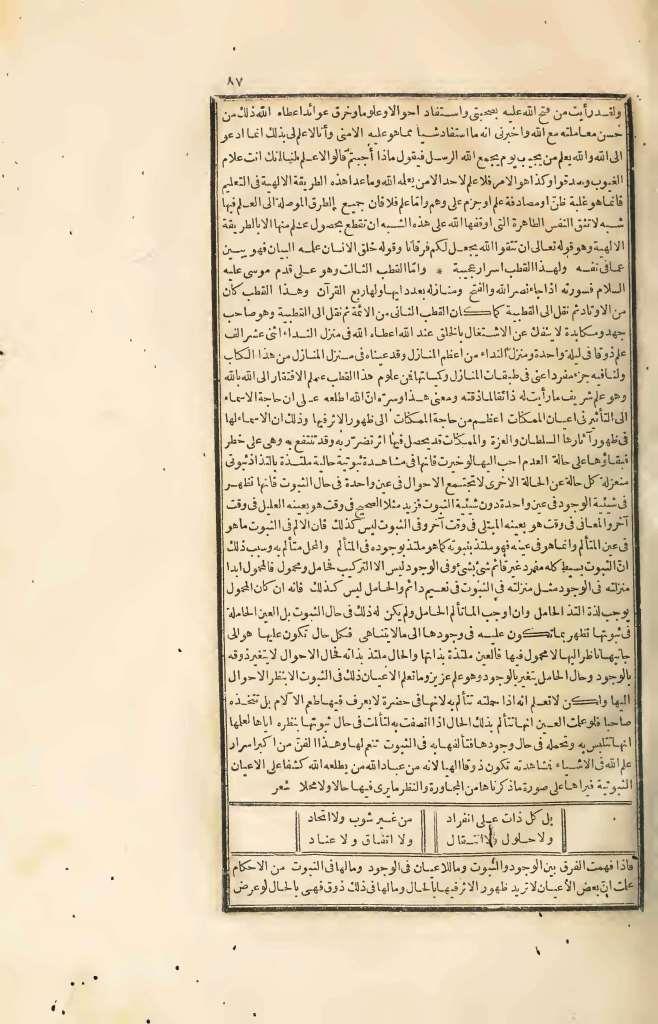 ٨٧
ولقد رأيت من فتح الله عليه بصحبتي واستفاد أحوالا وعلوما وخرق عوائد أعطاه الله ذلك من
حسن معاملته مع الله وأخبرني انه ما استفاد شيأ مما هو عليه الا مني وأنا لا علم لي بذلك انما ادعو
الى الله والله يعلم من يجيب يوم يجمع الله الرسل فيقول ماذا أجبتم قالوا لا علم لنا انك انت علام
الغيوب وصدقوا وكذا هو الامر فلا علم لاحد الا من يعلمه الله وما عدا هذه الطريقة الالهية في التعليم
فانما هو غلبة ظن او مصادفة علم او جزم على وهم واما علم فلا فان جميع الطرق الموصلة الى العلم فيها
شبه لا تثق النفس الطاهرة التى اوقفها الله على هذه الشبه ان تقطع بحصول علم منها الا بالطريقة
الالهية وهو قوله تعالى ان تتقوا الله يجعل لكم فرقانا وقوله خلق الانسان علمه البيان فهو يبين
عما فى نفسه ولهذا القطب اسرار عجيبة * واما القطب الثالث وهو على قدم موسى عليه
السلام فسورته اذا جاء نصر الله والفتح ومنازله بعدد آيها ولها ربع القرآن وهذا القطب كان
من الاوتاد ثم نقل الى القطبية كما كان القطب الثانى من الائمة ثم نقل الى القطبية وهو صاحب
جهد ومكابدة لا ينفك عن الاشتغال بالخلق عند الله اعطاه الله فى منزل النداء اثنى عشر الف
علم ذوقا فى ليلة واحدة ومنزل النداء من اعظم المنازل وقد عيناه فى منزل المنازل من هذا الكتاب
ولنا فيه جزء مفرد اعنى فى طبقات المنازل وكمياتها فمن علوم هذا القطب علم الافتقار الى الله بالله
وهو علم شريف ما رأيت له ذائقا لما ذقته ومعنى هذا وسره ان الله اطلعه على ان حاجة الاسماء
الى التأثير فى اعيان الممكنات اعظم من حاجة الممكنات الى ظهور الاثر فيها وذلك ان الاسماء لها
فى ظهور آثارها السلطان والعزة والممكنات قد يحصل فيها اثر تضر به وقد تنتفع به وهى على خطر
فبقاؤها على حالة العدم احب اليها لو خيرت فانها فى مشاهدة ثبوتية حالية ملتذة بالتذاذ ثبوتى
منعزلة كل حالة عن الحالة الاخرى لا تجتمع الاحوال فى عين واحدة فى حال الثبوت فانها تظهر
فى شيئية الوجود فى عين واحدة دون شيئية الثبوت فزيد مثلا الصحيح فى وقت هو بعينه العليل فى وقت
آخر والمعافى فى وقت هو بعينه المبتلى فى وقت آخر وفى الثبوت ليس كذلك فان الالم فى الثبوت ما هو
فى عين المتألم وانما هو فى عينه فهو ملتذ بثبوته كما هو ملتذ بوجوده فى المتألم والمحل متألم به وسبب ذلك
ان الثبوت بسيط كله مفرد غير قائم شئ بشئ وفى الوجود ليس الا التركيب فحامل ومحمول فالمحمول ابدا
منزلته فى الوجود مثل منزلته فى الثبوت فى نعيم دائم والحامل ليس كذلك فانه ان كان المحمول
يوجب لذة التذ الحامل وان اوجب الما تألم الحامل ولم يكن له ذلك فى حال الثبوت بل العين الحاملة
فى ثبوتها تظهر بما تكون عليه فى وجودها الى ما لا يتناهى فكل حال تكون عليها هو الى
جانبها ناظر اليها لا محمول فيها فالعين ملتذة بذاتها والحال ملتذ بذاته فحال الاحوال لا يتغير ذوقه
بالوجود وحال الحامل يتغير بالوجود وهو علم عزيز وما تعلم الاعيان ذلك فى الثبوت الا بنظر الاحوال
اليها ولكن لا تعلم انه اذا حملته تتألم به لانها فى حضرة لا يعرف فيها طعم الآلام بل تتخذه
صاحبا فلو علمت العين انها تتألم بذلك الحال اذا اتصفت به لتألمت فى حال ثبوتها بنظره اياها لعلمها
انها تتلبس به وتحمله فى حال وجودها فتألفها به فى الثبوت تنعم لها وهذا الفن من اكبر اسرار
علم الله فى الاشياء شاهدته تكون ذوقا الهيا لانه من عباد الله من يطلعه الله كشفا على الاعيان
الثبوتية فيراها على صورة ما ذكرناها من المجاورة والنظر ما يرى فيها حالا ولا محلا شعر
بل كل ذات على انفراد من غير شوب ولا اتحاد
ولا حلول ولا انتقال ولا اتفاق ولا عناد
فاذا فهمت الفرق بين الوجود والثبوت وما للاعيان فى الوجود وما لها فى الثبوت من الاحكام
علمت ان بعض الأعيان لا تريد ظهور الاثر فيها بالحال وما لها فى ذلك ذوق فهى بالحال لو عرض